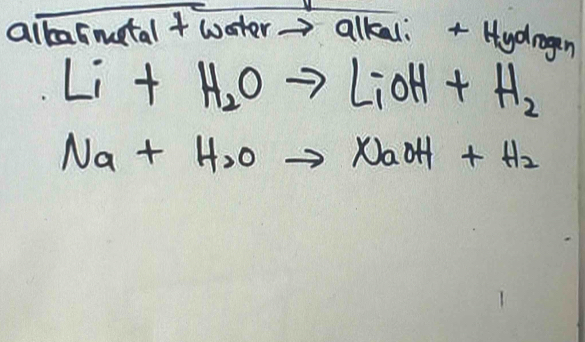 alkali metal + water → alkali + Hydrogen
. Li + H₂O → LiOH + H₂
Na + H₂O → NaOH + H₂